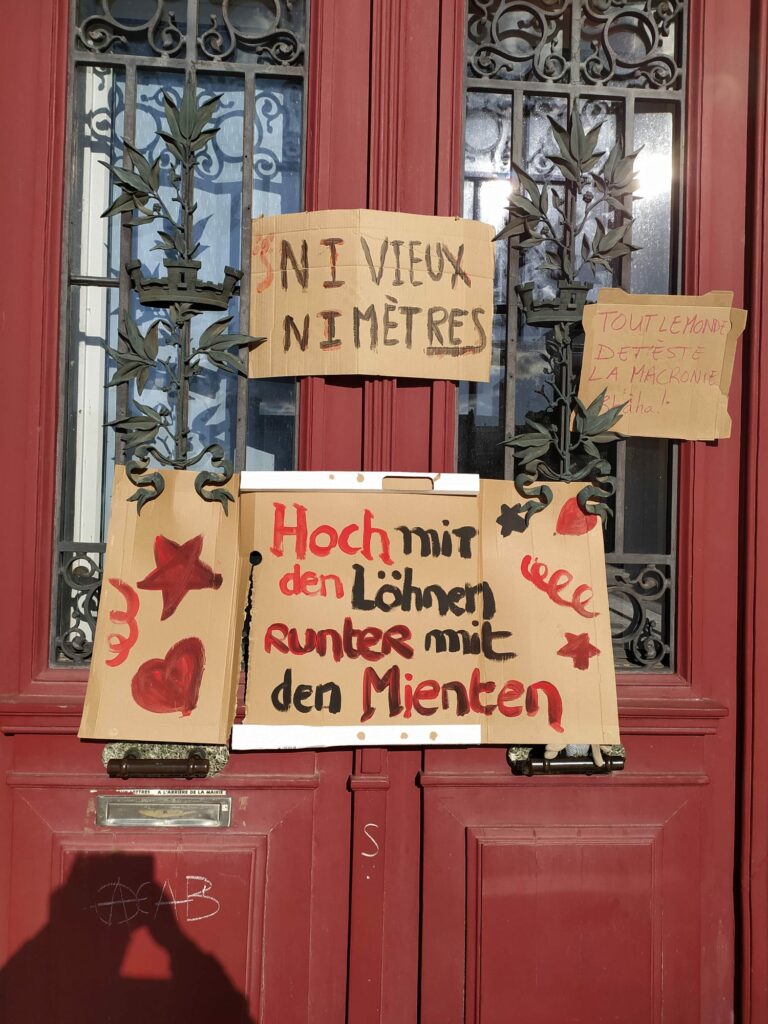 NI VIEUX
NI MÈTRES
TOUT LE MONDE
DETESTE
LA MACRONIE
Hoch mit
den Löhnen
RUNTER mit
den Mienten
A L'ARRIÈRE DE LA MAIRIE
S
ACAB